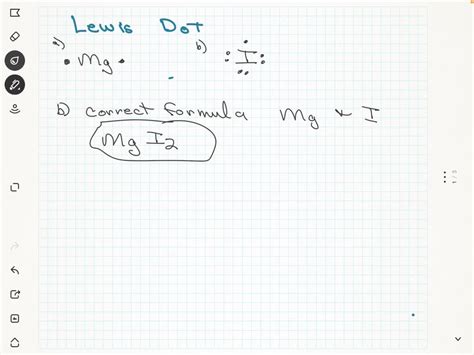 Lewis Dot
a) • Mg •
b) I
b) correct formula Mg + I
Mg I2